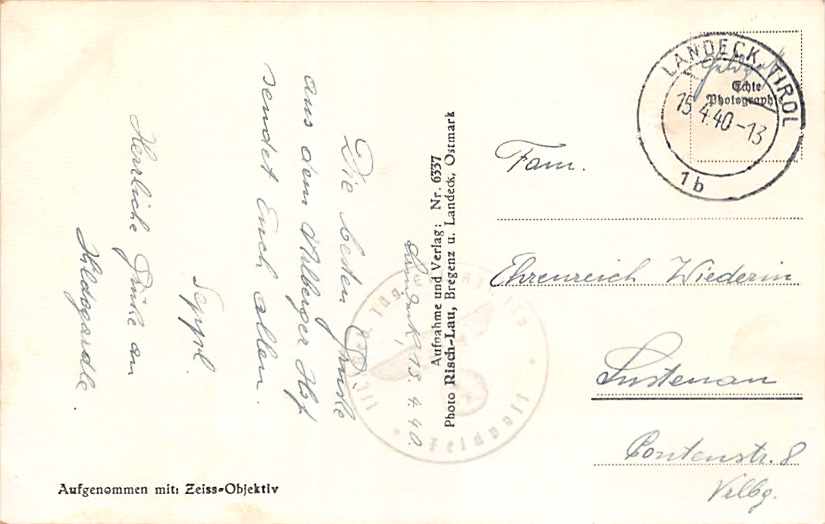 Landeck, 15.4.40.
Die besten Grüße
aus dem Arlberger Hof
sendet Euch allen.
Seppl.
Herrliche Grüße an
Hildegardle.
Aufgenommen mit: Zeiss-Objektiv
Aufnahme und Verlag: Nr. 6337
Photo Risch-Lau, Bregenz u. Landeck, Ostmark
LANDECK, TIROL
15.4.40-13
1b
Echte
Photographie
Feldpost
Fam.
Ehrenreich Wiederin
Lustenau
Pontenstr. 8
Vrlbg.